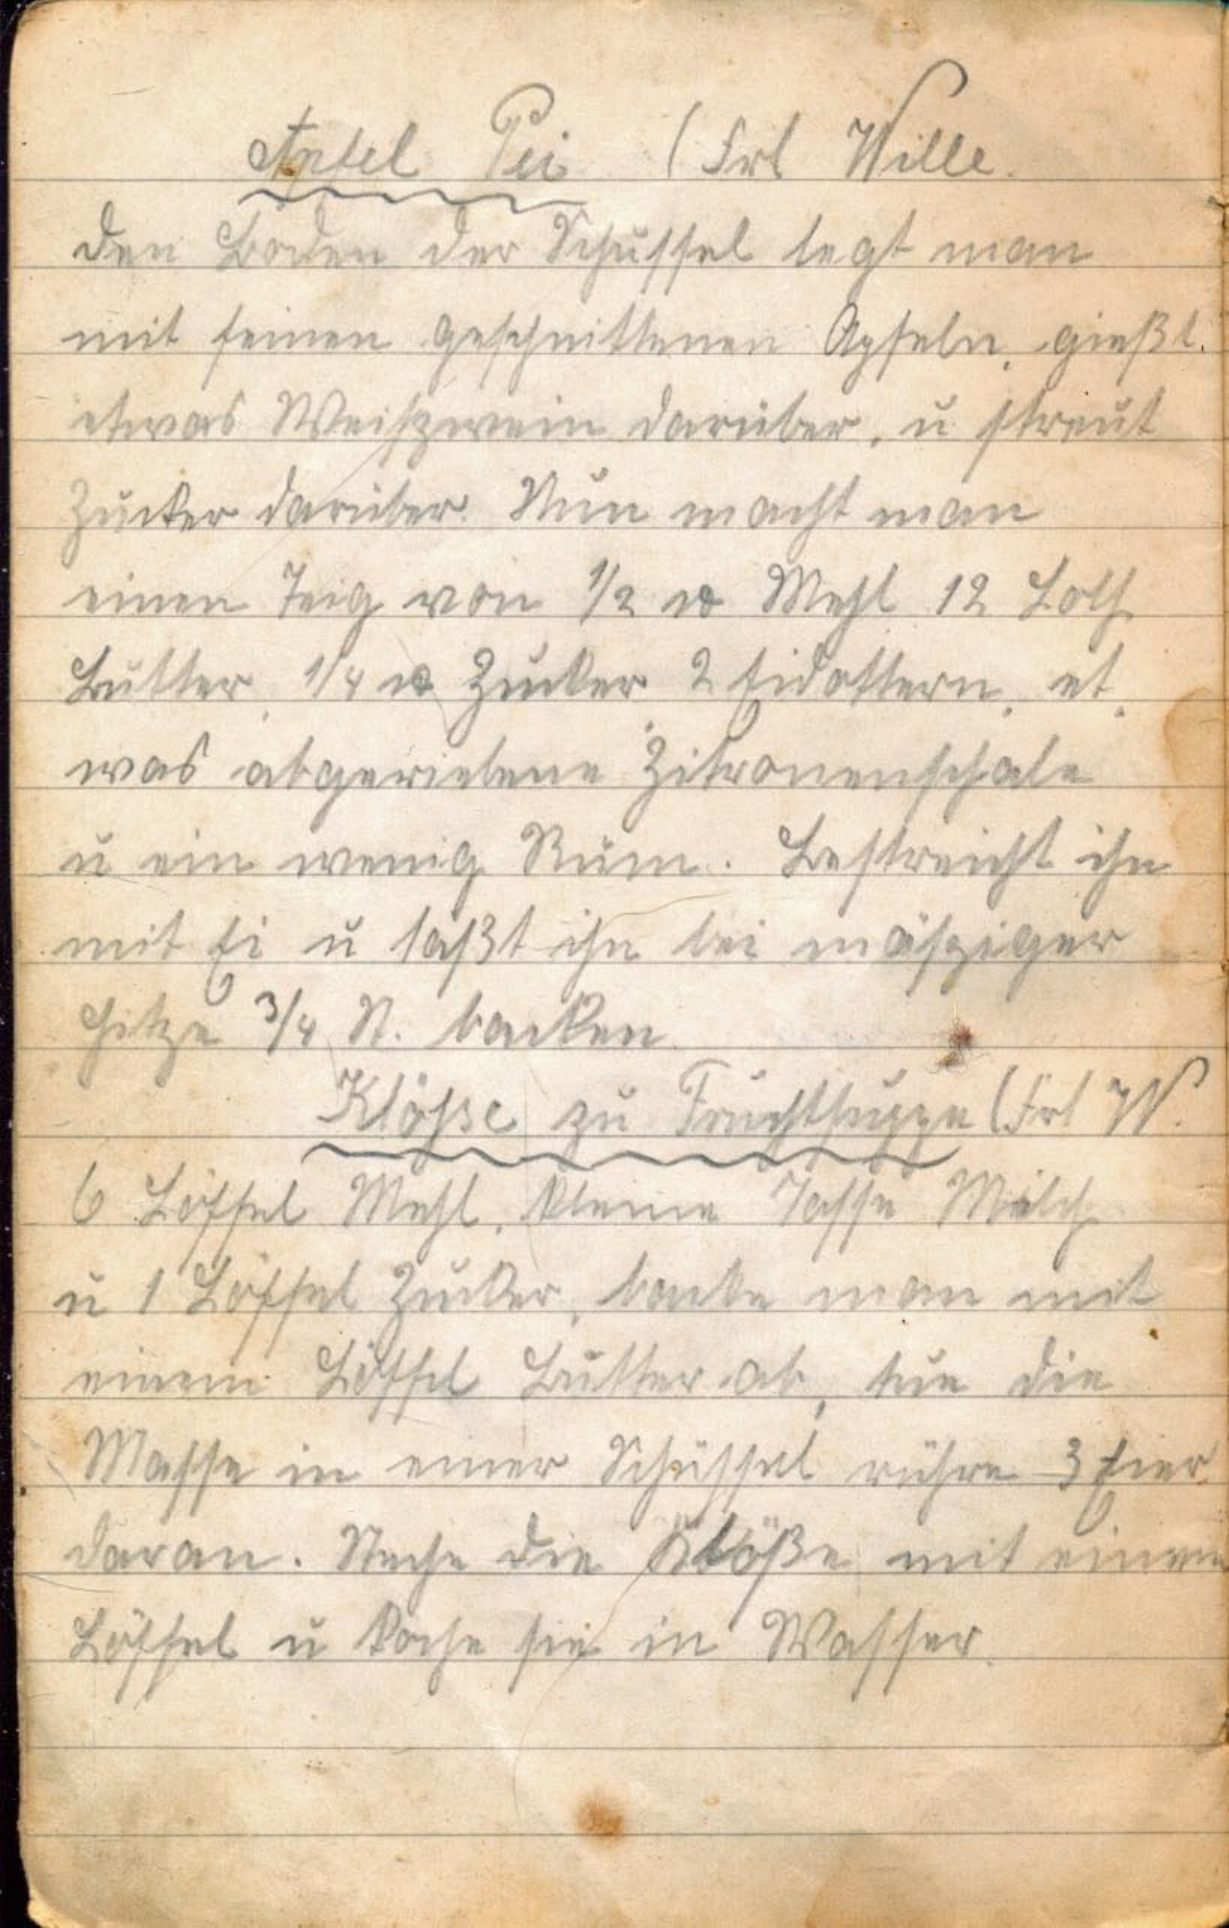 Apfel Pei (Frl Wille.
Den Boden der Schüssel legt man
mit feinen geschnittenen Äpfeln, gießt
etwas Weiszwein darüber, u streut
Zucker darüber. Nun macht man
einen Teig von 1/2 ℔ Mehl 12 Loth
Butter, 1/4 ℔ Zucker 2 Eidottern, et.
was abgeriebene Zitronenschale
u ein wenig Rum. Bestreicht ihn
mit Ei u laßt ihn bei mäsziger
Hitze 3/4 St. backen.
Klösse zu Fruchtsuppe (Frl W.
6 Löffel Mehl, kleine Tasse Milch
u 1 Löffel Zucker, backe man mit
einem Löffel Butter ab, tue die
Masse in einer Schüssel rühre 3 Eier
daran. Steche die Klöße mit einem
Löffel u koche sie in Wasser.